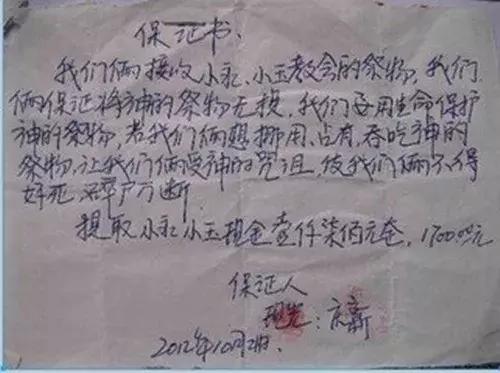 保证书.
我们俩接收小永.小玉教会的祭物,我们
俩保证将神的祭物无损,我们要用生命保护
神的祭物,若我们俩想挪用、占有、吞吃神的
祭物,让我们俩受神的咒诅,使我们俩不得
好死
提取小永小玉现金壹仟柒佰元全, 1700.00元
保证人
2012年10月21日.